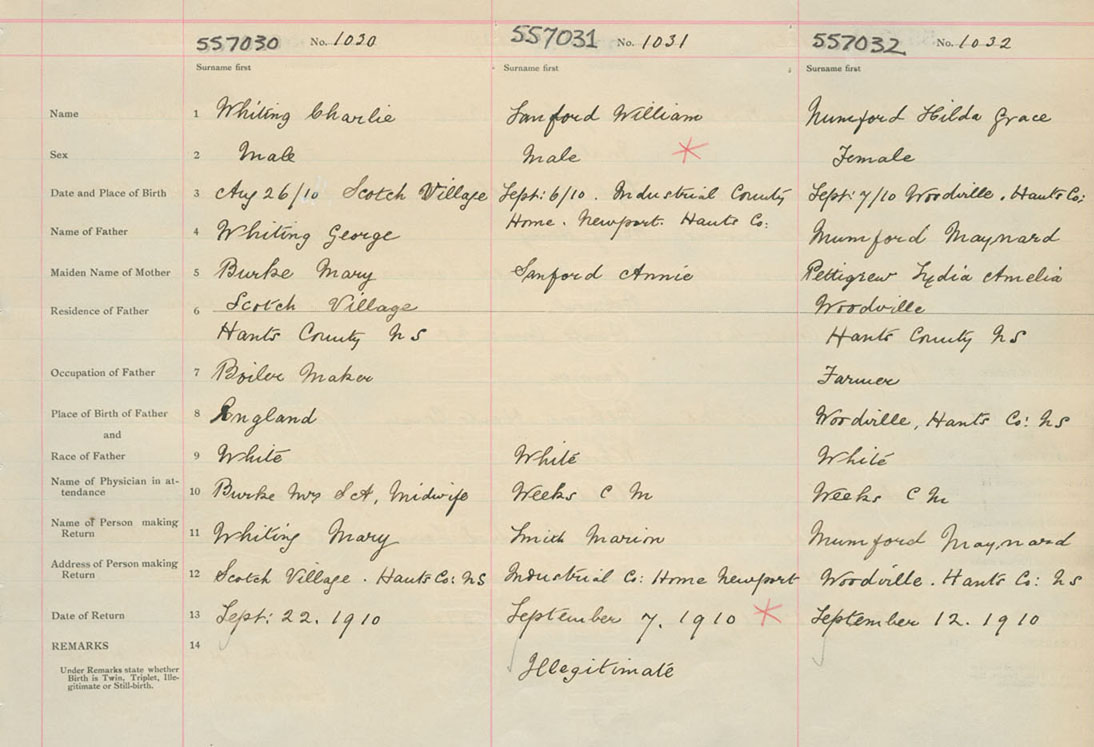 557030 No. 1030 557031 No. 1031 557032 No. 1032
Surname first Surname first Surname first
Name 1 Whiting Charlie Sanford William Mumford Hilda Grace
Sex 2 Male Male Female
Date and Place of Birth 3 Aug 26/10 Scotch Village Sept: 6/10. Industrial County Sept: 7/10 Woodville. Hants Co:
Home. Newport. Hants Co:
Name of Father 4 Whiting George Mumford Maynard
Maiden Name of Mother 5 Burke Mary Sanford Annie Pettigrew Lydia Amelia
Residence of Father 6 Scotch Village Woodville
Hants County NS Hants County NS
Occupation of Father 7 Boiler Maker Farmer
Place of Birth of Father 8 England Woodville, Hants Co: NS
and
Race of Father 9 White White White
Name of Physician in at-
tendance 10 Burke Mrs S A, Midwife Weeks C M Weeks C M
Name of Person making
Return 11 Whiting Mary Smith Marion Mumford Maynard
Address of Person making
Return 12 Scotch Village. Hants Co: NS Industrial Co: Home Newport Woodville. Hants Co: NS
Date of Return 13 Sept: 22. 1910 September 7. 1910 September 12. 1910
REMARKS 14
Under Remarks state whether
Birth is Twin, Triplet, Ille-
gitimate or Still-birth.
Illegitimate